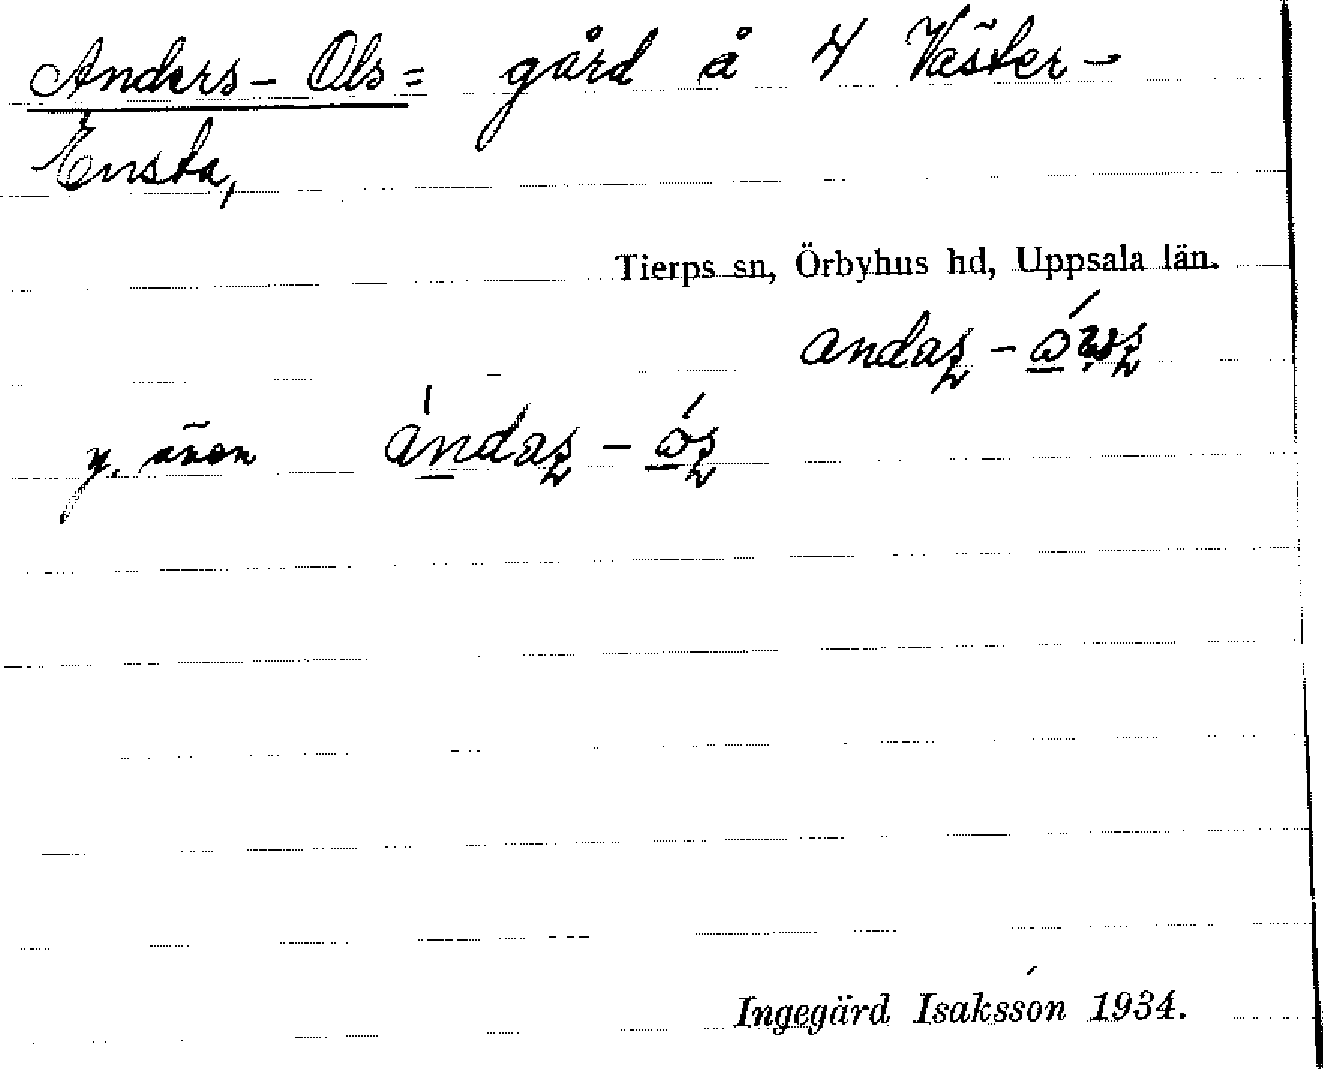 Anders-Ols= gård å 4 Väster-
Ensta,
Tierps sn, Örbyhus hd, Uppsala län.
andaʂ -
y. även ándaʂ - óʂ
Ingegärd Isaksson 1934.